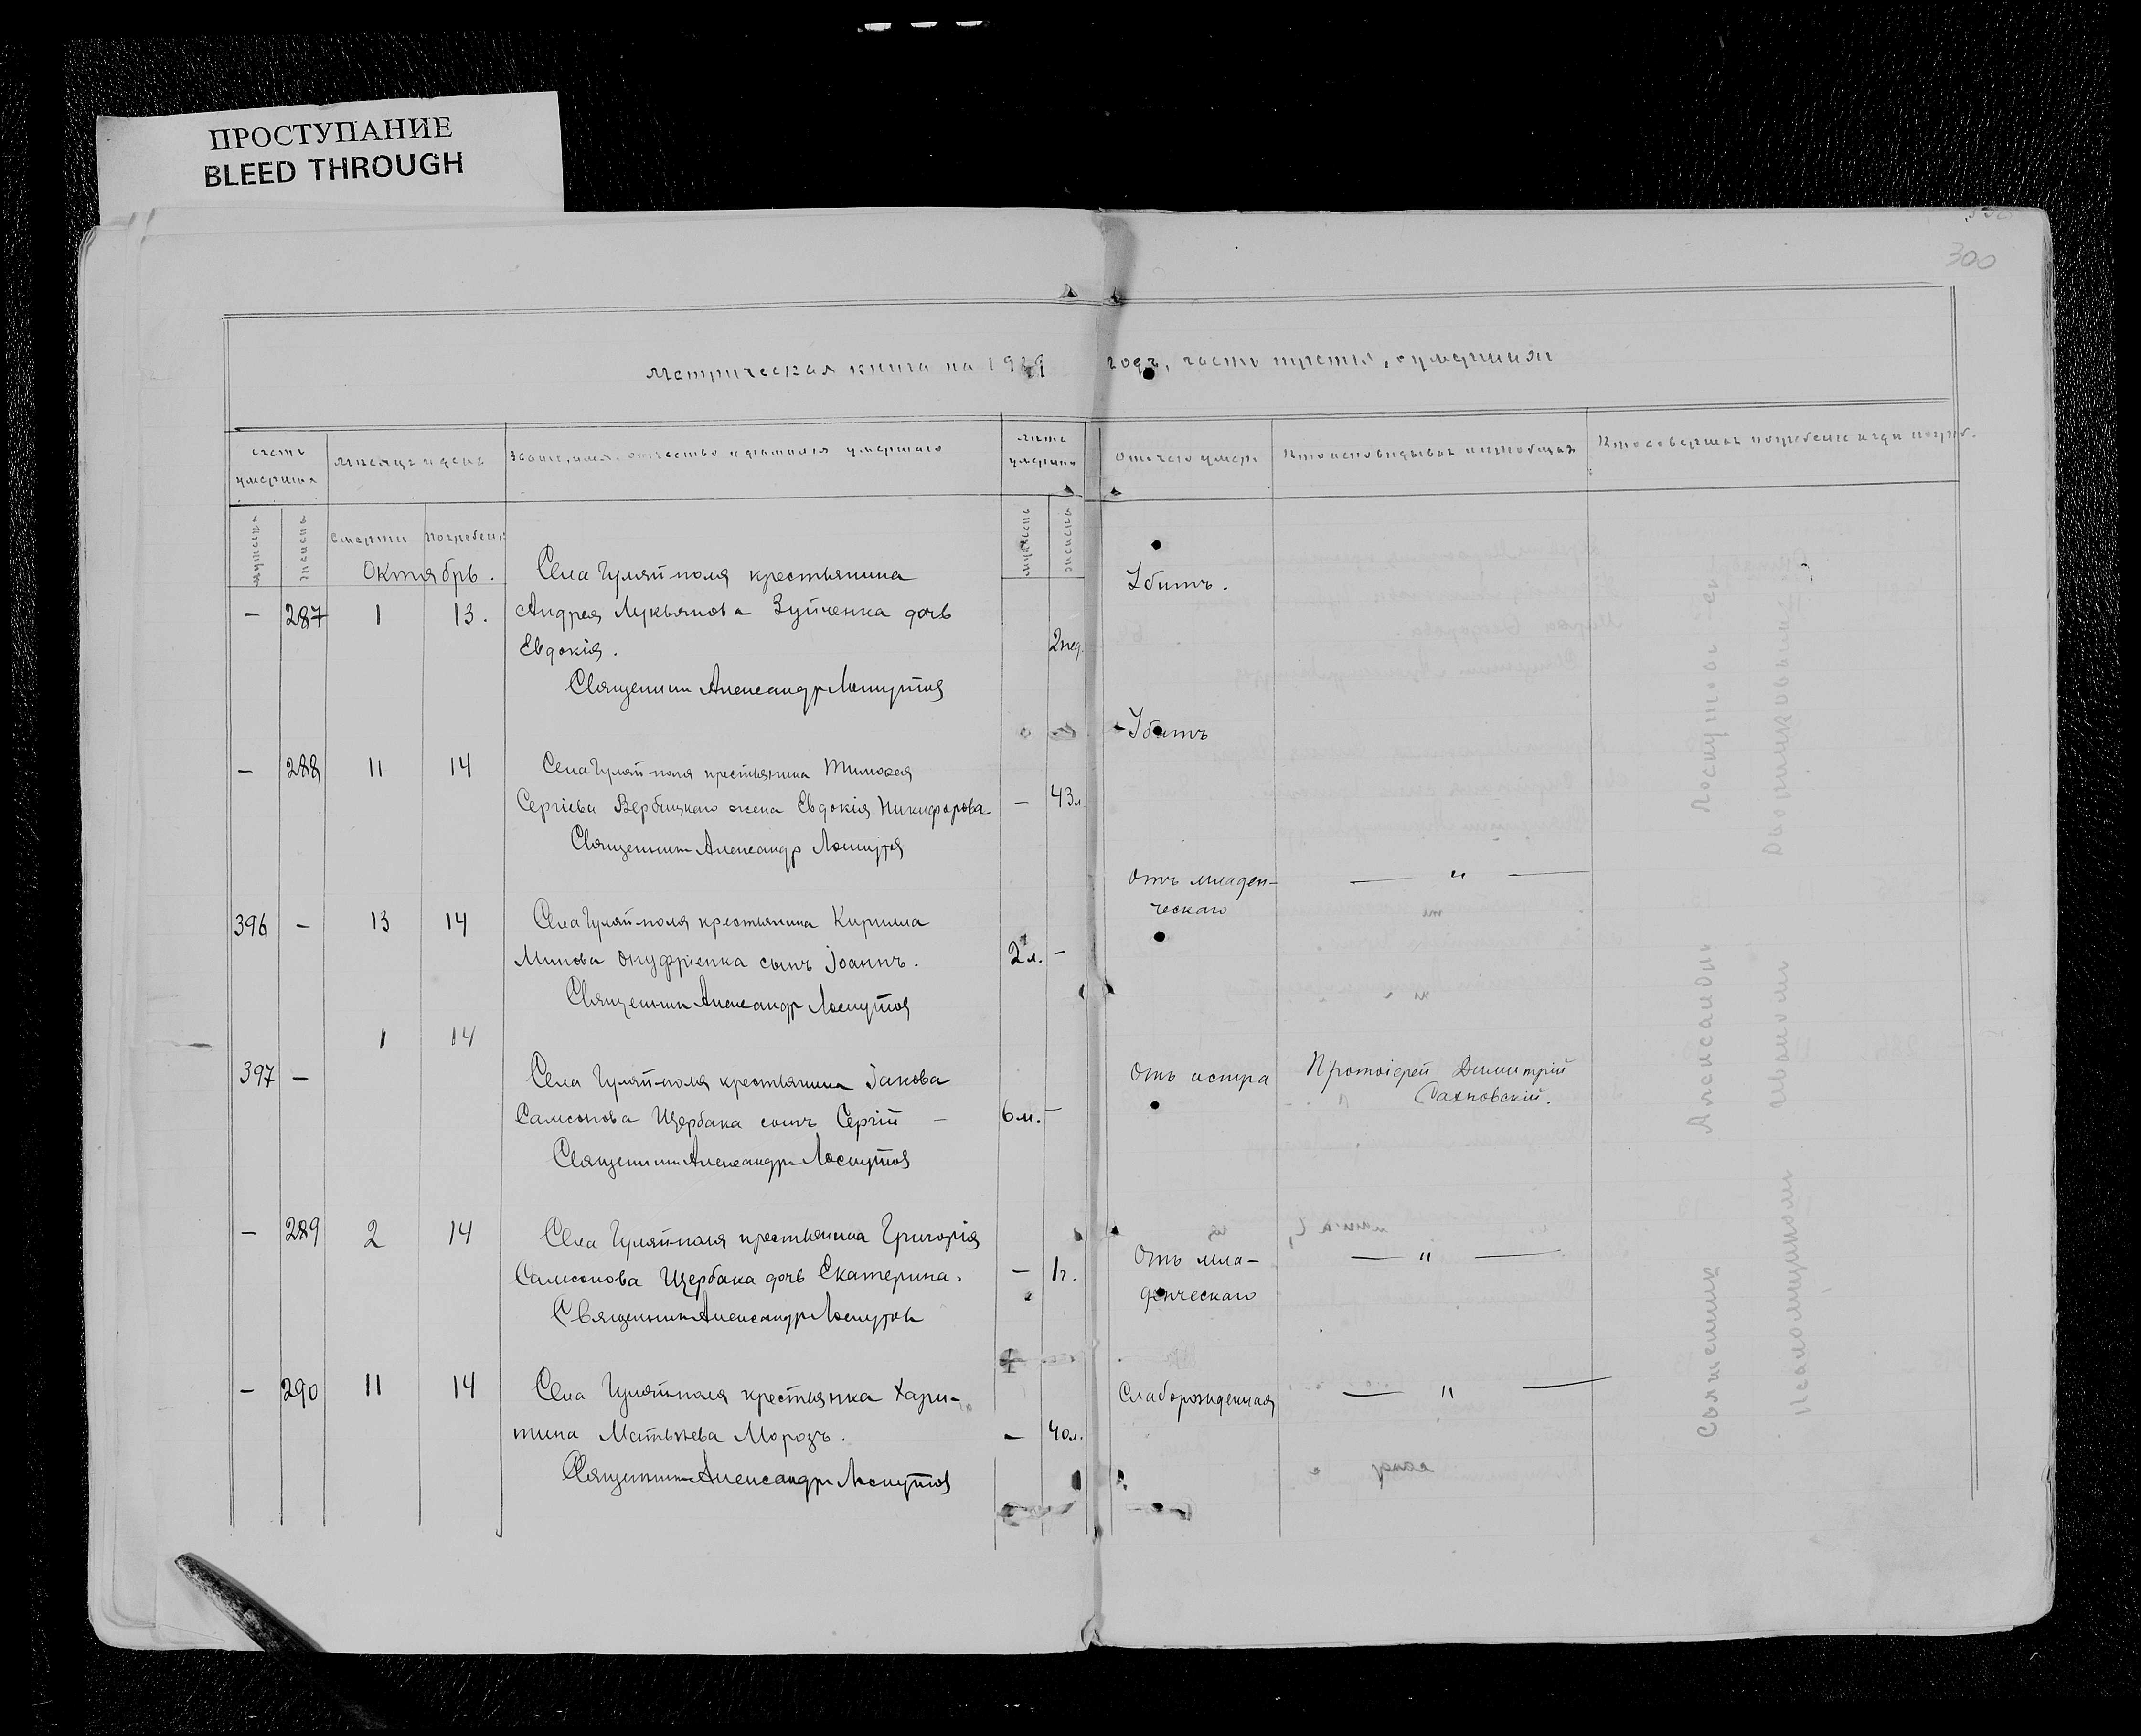 ПРОСТУПАНИЕ
BLEED THROUGH
300
Метрическая книга на 19 годъ, часть третья, о умершихъ
счетъ умершихъ
мѣсяцъ и день
Званіе, имя, отчество и фамилія умершаго
лѣта умершаго
Отъ чего умеръ
Кто исповѣдывалъ и пріобщалъ
Кто совершалъ погребеніе и гдѣ погреб.
мужеска
женска
Смерти
Погребен.
мужеска
женска
Октябрь.
Села Гуляй-поля крестьянина
Убитъ.
— 287 1 13. Андрея Лукьянова Зуйченка дочь
Евдокія. 2 нед.
Священникъ Александръ Лоскутов
Убитъ
— 288 11 14 Села Гуляй-поля крестьянина Тимофея
Сергіева Вербицкаго жена Евдокія Никифорова — 43 л.
Священникъ Александр Лоскутов
Отъ младен- — " —
ческаго
396 — 13 14 Села Гуляй-поля крестьянина Кирилла
Минова Онуфріенка сынъ Іоаннъ. 2 л. —
Священникъ Александр Лоскутов
1 14
397 — Села Гуляй-поля крестьянина Іакова
Отъ Протоіерей Димитрій
Сахновскій.
Самсонова Щербака сынъ Сергій — 6 м. —
Священникъ Александръ Лоскутов
— 289 2 14 Села Гуляй-поля крестьянина Григорія
Отъ мла- — " —
денческаго
Самсонова Щербака дочь Екатерина. — 1 г.
Священникъ Александръ Лоскутов
— 290 11 14 Села Гуляй-поля крестьянка Хари-
Слаборожденная — " —
тина Матвѣева Морозъ. — 40 л.
Священникъ Александръ Лоскутов
Священникъ Александръ Лоскутовъ
Псаломщикъ